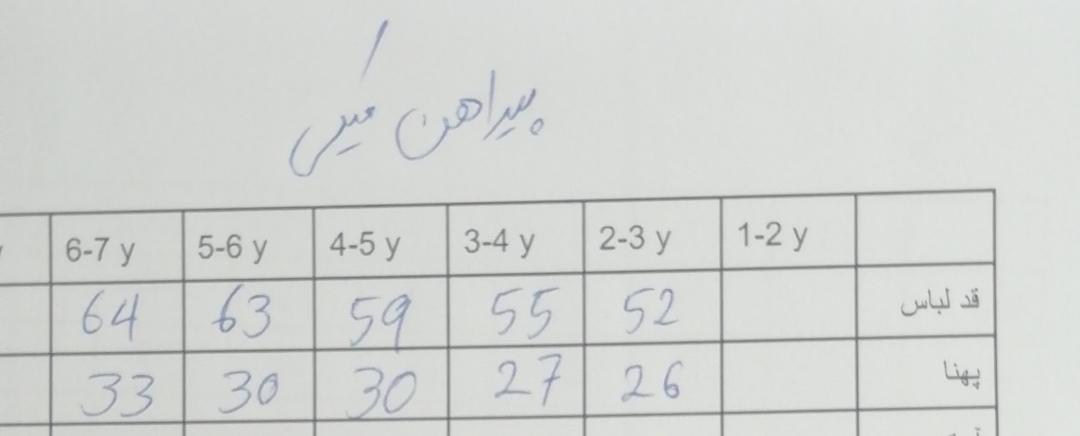 پیراهن
1-2 y 2-3 y 3-4 y 4-5 y 5-6 y 6-7 y
قد لباس 52 55 59 63 64
پهنا 26 27 30 30 33